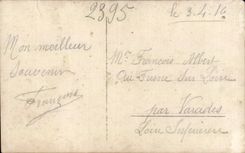 2395
le 3.4.16
Mon meilleur
Souvenir
François
Mr François Albert
sur Loire
par Varades
Loire Inférieure